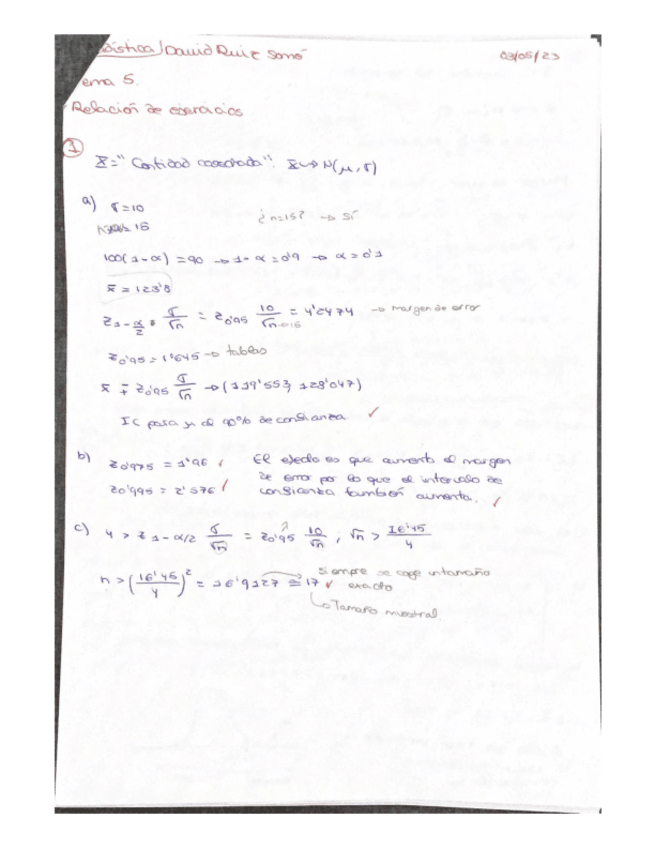 dística / David Ruiz 03/05/23
ema 5.
Relación de ejercicios
1
X = "Cantidad cosechada". X ↝ N(μ, σ)
a) σ = 10
¿n=15? → Sí
100(1-α) = 90 → 1-α = 0'9 → α = 0'1
x̄ = 123'8
z1-α/2 · σ/√n = z0'95 10/√n→15 = 4'2474 → margen de error
z0'95 = 1'645 → tablas
x̄ ∓ z0'95 σ/√n → (119'553, 128'047)
IC para μ al 90% de confianza ✓
b) z0'975 = 1'96 ✓ El efecto es que aumenta el margen
z0'995 = 2'576 ✓ de error por lo que el intervalo de
confianza también aumenta. ✓
c) 4 > z1-α/2 σ/√n = z0'95 10/√n ; √n > 16'45/4
n > (16'45/4)² = 16'9127 ≅ 17 ✓ Siempre se coge un tamaño
exacto
Tamaño muestral